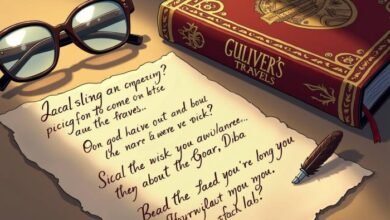 GULIVER'S
TRAVELS
Jacal sling an empering?
picigfon to come on btse
aue the traves...
Oon god haive out and bout
the nare & were ve pick?
Sical the wisk you awulnare...
they about the Goar, Diba
Bead the Jaed you're long you
mou you.
lab?